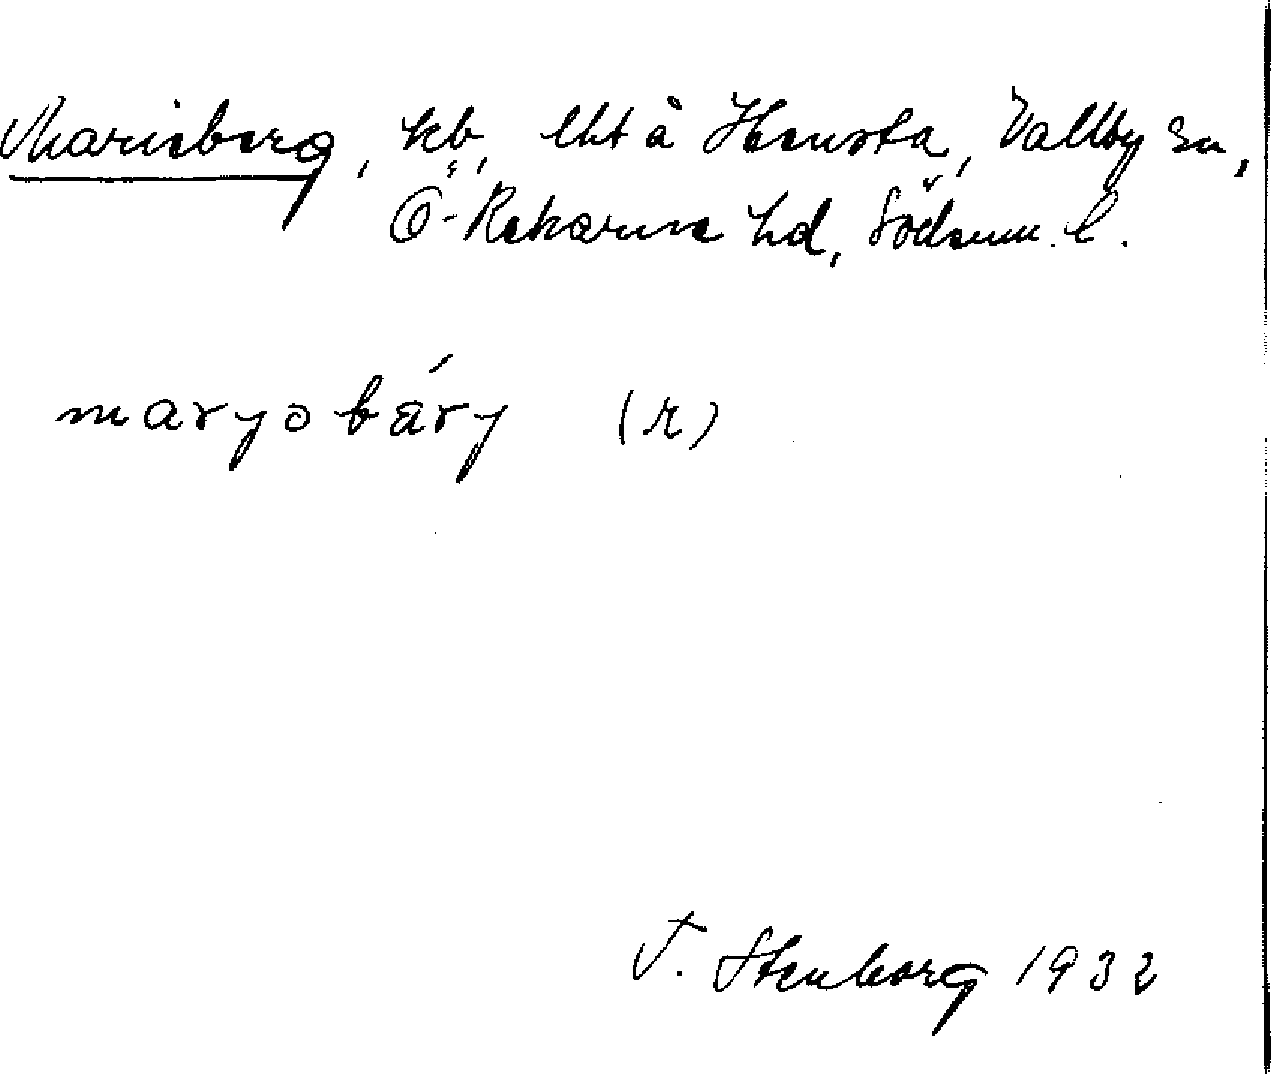 Marieberg, kb, lht å Hensta, Vallby sn,
Ö-Rekarne hd, Söderm. l.
maryobäry (r)
T. Stenborg 1932